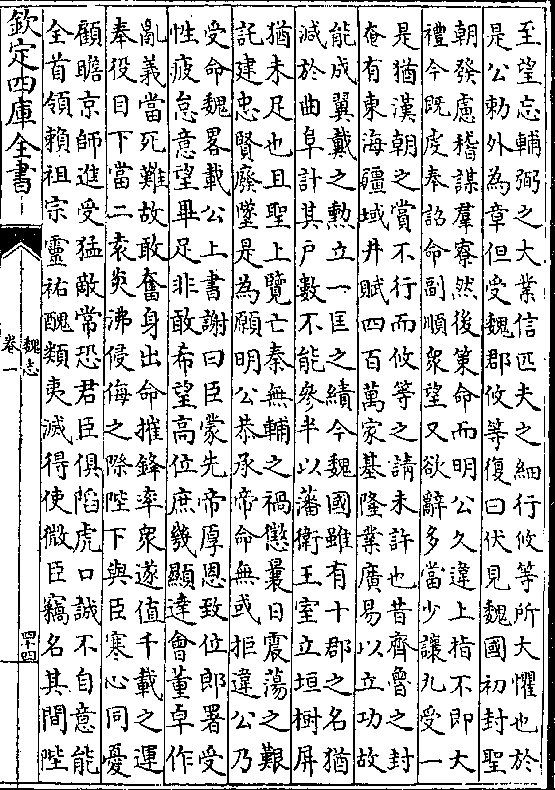 至望忘輔弼之大業信匹夫之細行攸等所大懼也於
是公勑外為章但受魏郡攸等復曰伏見魏國初封聖
朝發慮稽謀羣寮然後策命而明公久違上指不即大
禮今既虔奉詔命副順衆望又欲辭多當少讓九受一
是猶漢朝之賞不行而攸等之請未許也昔齊魯之封
奄有東海疆域井賦四百萬家基隆業廣易以立功故
能成翼戴之勲立一匡之績今魏國雖有十郡之名猶
減於曲阜計其户數不能參半以藩衛王室立垣樹屏
猶未足也且聖上覽亡秦無輔之禍懲曩日震蕩之艱
託建忠賢廢墜是為願明公恭承帝命無或拒違公乃
受命魏畧載公上書謝曰臣蒙先帝厚恩致位郎署受
性疲怠意望畢足非敢希望高位庶幾顯達會董卓作
亂義當死難故敢奮身出命摧鋒率衆遂值千載之運
奉役目下當二袁炎沸侵侮之際陛下與臣寒心同憂
顧瞻京師進受猛敵常恐君臣俱陷虎口誠不自意能
全首領賴祖宗靈祐醜類夷滅得使微臣竊名其間陛
欽定四庫全書
魏志
卷一
四十四